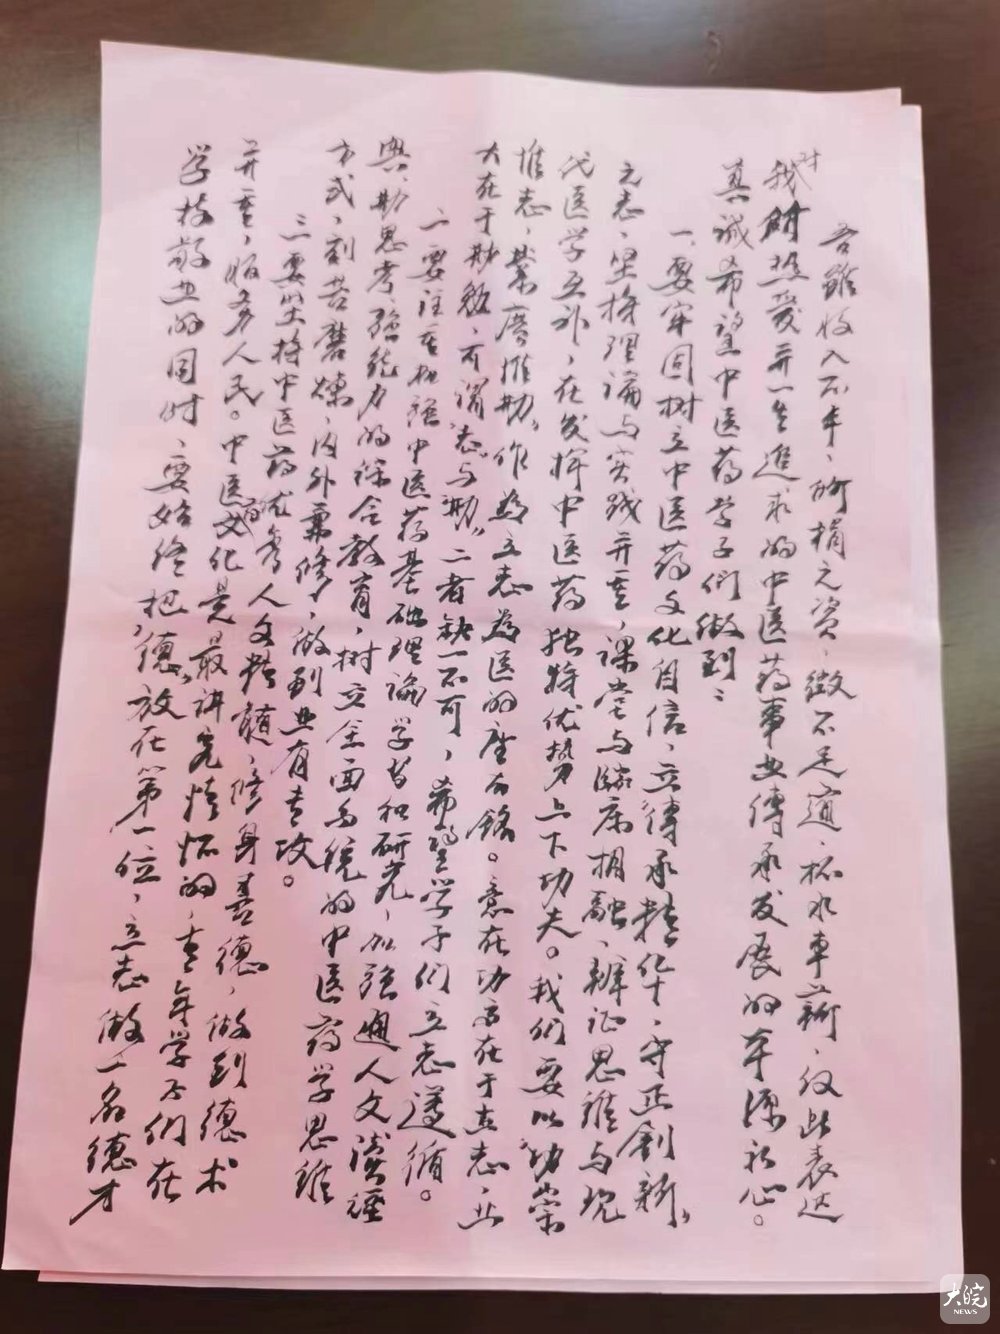 吾虽收入不丰，所捐之资，微不足道，杯水车薪，仅此表达
我对热爱并一生追求的中医药事业传承发展的本源初心。
真诚希望中医药学子们做到：
一、要牢固树立中医药文化自信，立“传承精华，守正创新”
之志，坚持理论与实践并重，课堂与临床相融、辨证思维与现
代医学互补，在发挥中医药独特优势上下功夫。我们要以“功崇
惟志，业广惟勤”作为立志为医的座右铭。意在功高在于立志，业
大在于勤勉，可谓“志与勤”二者缺一不可，希望学子们立志遵循。
二、要注重加强中医药基础理论学习和研究，加强通人文读经
典，勤思考强能力的综合教育，树立全面系统的中医药学思维
方式，刻苦磨炼，内外兼修，做到业有专攻。
三、要坚持中医药优秀人文精髓，修身善德，做到德术
并重，恒务人民。中医药文化是最讲究情怀的，青年学子们在
学技敬业的同时，要始终把“德”放在第一位，立志做一名德才
大皖
NEWS